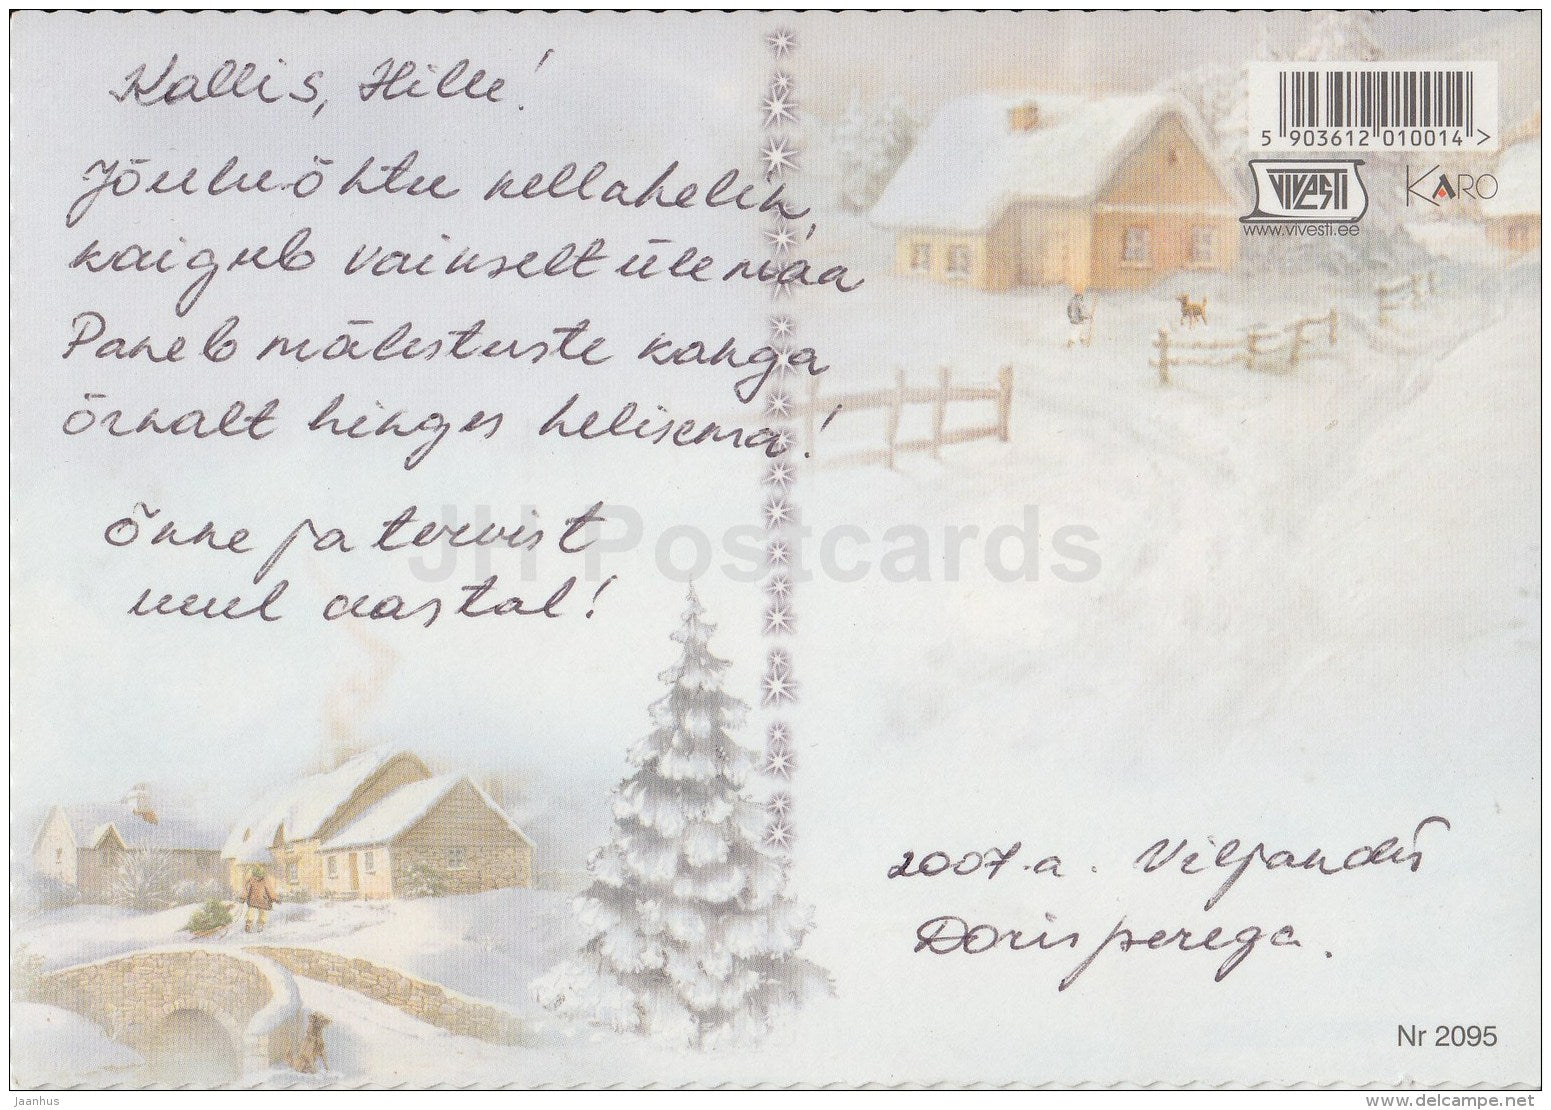 Kallis, Hille!
Jõuluõhtu kellahelin,
kaigub vaikselt üle maa
Paneb mälestuste kanga
õrnalt hinges helisema!
Õnne ja tervist
uuel aastal!
5 903612 010014 >
VIVESTI
KARO
www.vivesti.ee
JH Postcards
2007.a. Viljandis
Doris perega.
Nr 2095
Jaanhus
www.delcampe.net